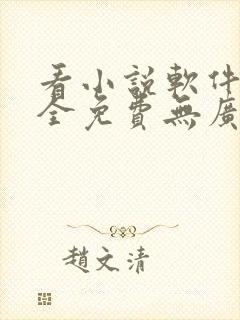 看小說軟件
全免費無廣
趙文清